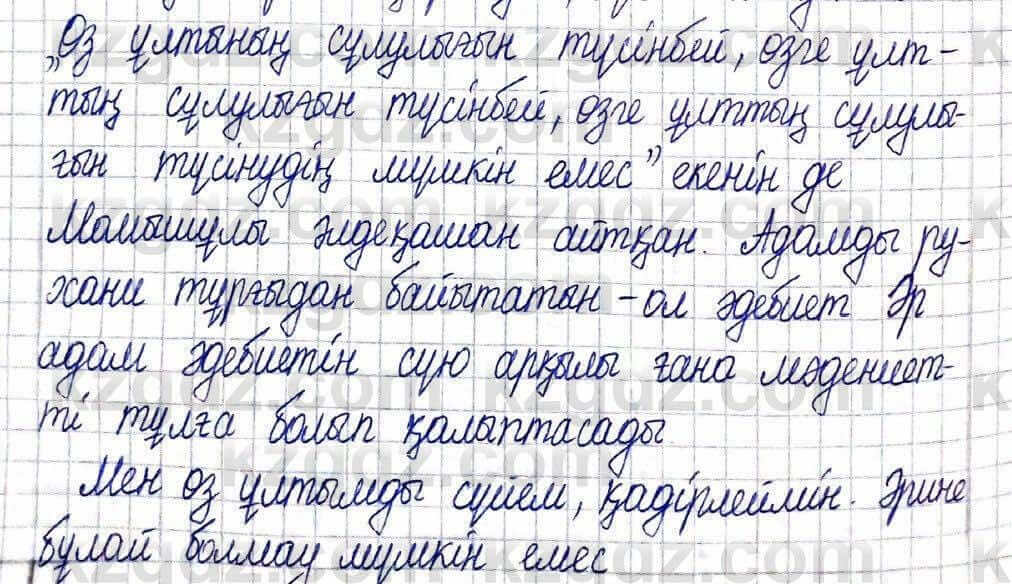 „Өз ұлтының сұлулығын түсінбей, өзге ұлт-
тың сұлулығын түсінбей, өзге ұлттың сұлулы-
ғын түсінудің мүмкін емес” екенін де
Момышұлы әлдеқашан айтқан. Адамды ру-
хани тұрғыдан байытатын – ол әдебиет Әр
адам әдебиетін сүю арқылы ғана мәдениет-
ті тұлға болып қалыптасады
Мен өз ұлтымды сүйем, қадірлеймін. Әрине
бұлай болмау мүмкін емес